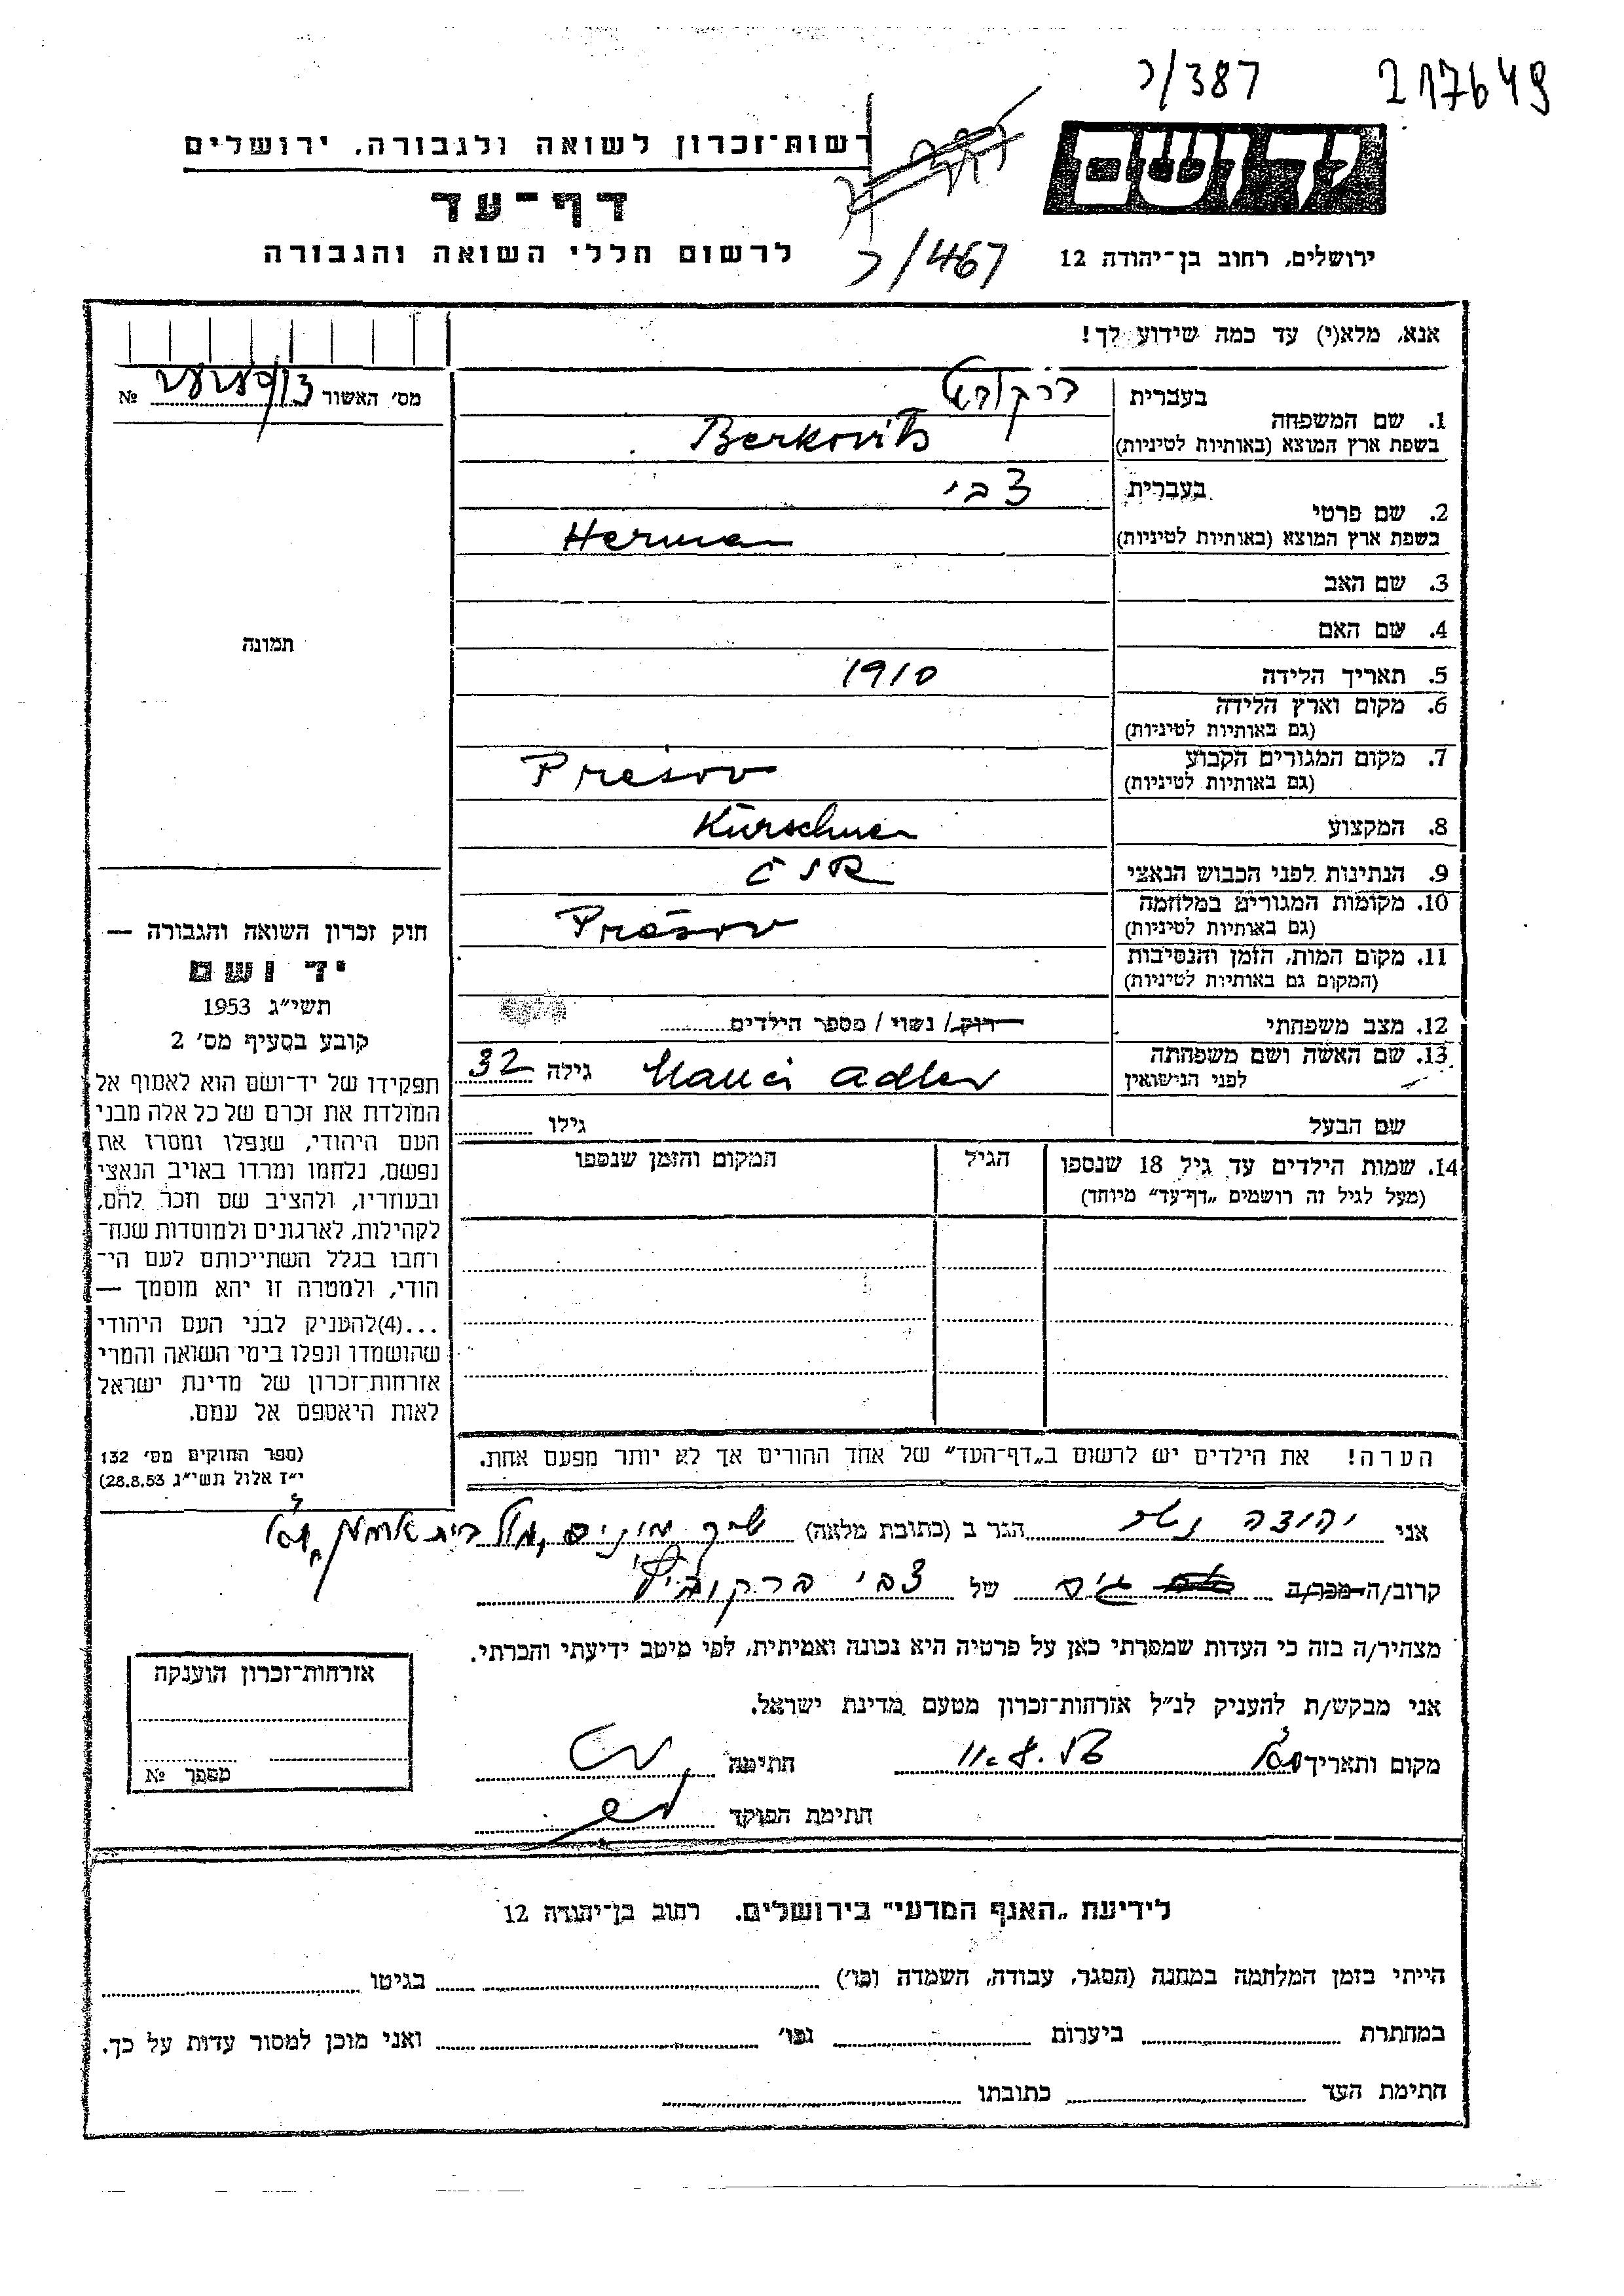 ר/387
217649
רשות־זכרון לשואה ולגבורה, ירושלים
דף־עד
לרשום חללי השואה והגבורה
ידושם
ירושלים, רחוב בן־יהודה 12
ר/467
אנא, מלא(י) עד כמה שידוע לך!
מס׳ האשור № 
1. שם המשפחה
בעברית ברקוביץ
בשפת ארץ המוצא (באותיות לטיניות) Berkovits
2. שם פרטי
בעברית צבי
בשפת ארץ המוצא (באותיות לטיניות) Herman
3. שם האב
4. שם האם
5. תאריך הלידה 1910
6. מקום וארץ הלידה
(גם באותיות לטיניות)
7. מקום המגורים הקבוע Presov
(גם באותיות לטיניות)
8. המקצוע Kürschner
9. הנתינות לפני הכבוש הנאצי ČSR
10. מקומות המגורים במלחמה Prešov
(גם באותיות לטיניות)
11. מקום המות, הזמן והנסיבות
(המקום גם באותיות לטיניות)
12. מצב משפחתי רוק/ נשוי / מספר הילדים
13. שם האשה ושם משפחתה Manci Adler גילה 32
לפני הנישואין
שם הבעל גילו
14. שמות הילדים עד גיל 18 שנספו הגיל המקום והזמן שנספו
(מעל לגיל זה רושמים „דף־עד״ מיוחד)
הערה! את הילדים יש לרשום ב„דף־העד״ של אחד ההורים אך לא יותר מפעם אחת.
תמונה
חוק זכרון השואה והגבורה —
יד ושם
תשי״ג 1953
קובע בסעיף מס׳ 2
תפקידו של יד־ושם הוא לאסוף אל
המולדת את זכרם של כל אלה מבני
העם היהודי, שנפלו ומסרו את
נפשם, נלחמו ומרדו באויב הנאצי
ובעוזריו, ולהציב שם וזכר להם,
לקהילות, לארגונים ולמוסדות שנח־
רבו בגלל השתייכותם לעם הי־
הודי, ולמטרה זו יהא מוסמך —
...(4)להעניק לבני העם היהודי
שהושמדו ונפלו בימי השואה והמרי
אזרחות־זכרון של מדינת ישראל
לאות היאספם אל עמם.
(ספר החוקים מס׳ 132
י״ז אלול תשי״ג 28.8.53)
אני יהודה הגר ב (כתובת מלאה)
קרוב/ה מכר/ה גיס של צבי ברקוביץ
מצהיר/ה בזה כי העדות שמסרתי כאן על פרטיה היא נכונה ואמיתית, לפי מיטב ידיעתי והכרתי.
אני מבקש/ת להעניק לנ״ל אזרחות־זכרון מטעם מדינת ישראל.
מקום ותאריך חתימה
חתימת הפוקד
אזרחות־זכרון הוענקה
מספר №
לידיעת „האגף המדעי״ בירושלים. רחוב בן־יהודה 12
הייתי בזמן המלחמה במחנה (הסגר, עבודה, השמדה וכו׳) בגיטו
במחתרת ביערות וכו׳ ואני מוכן למסור עדות על כך.
חתימת העד כתובתו